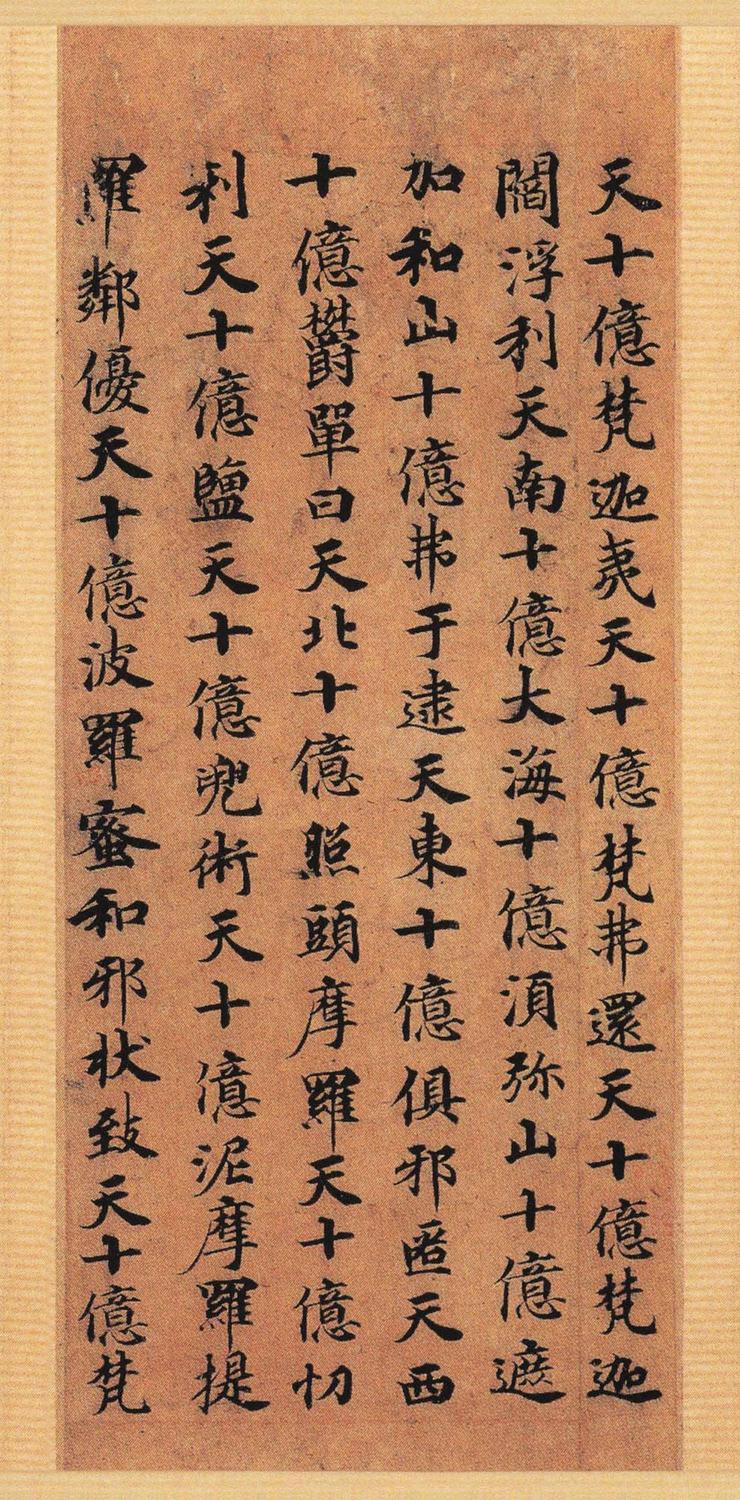 天十億梵迦夷天十億梵弗還天十億梵迦
閻浮利天南十億大海十億須弥山十億遮
加和山十億弗于逮天東十億俱邪匿天西
十億欝單曰天北十億照頭摩羅天十億忉
利天十億鹽天十億兜術天十億泥摩羅提
羅鄰優天十億波羅蜜和邪状致天十億梵